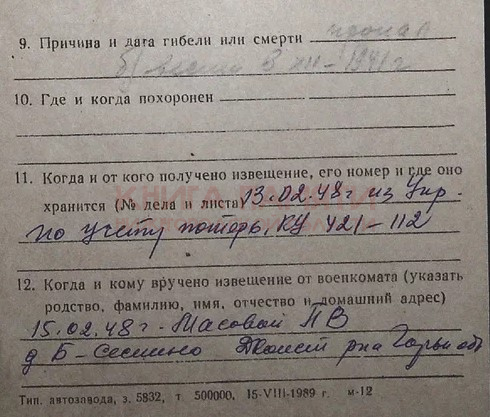 9. Причина и дата гибели или смерти пропал
б/вести 3 XII-1941 г
10. Где и когда похоронен
11. Когда и от кого получено извещение, его номер и где оно
хранится (№ дела и листа) 13.02.48 г из Упр.
по учету потерь, КУ 421-112
12. Когда и кому вручено извещение от военкомата (указать
родство, фамилию, имя, отчество и домашний адрес)
15.02.48 г - Масовой ПВ
д Б-Сескино р-на Горьк обл
Тип. автозавода, з. 5832, т. 500000, 15-VIII-1989 г. м-12